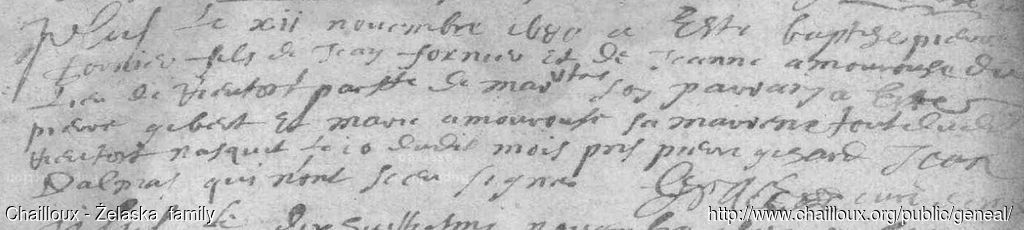 Plus le xii novembre 1680 a Este baptize pierre
fornier fils de Jean fornier Et de Jeanne amourouse du
lieu de vieufort paroisse de son parrain a Este
pierre gibert Et marie amourouse sa marrene tout dudit
vieufort nasquit le 10 dudit mois pns pierre gerard Jean
Dalmas qui nont sceu signer curé
novembre
Chailloux - Żelaska family
http://www.chailloux.org/public/geneal/